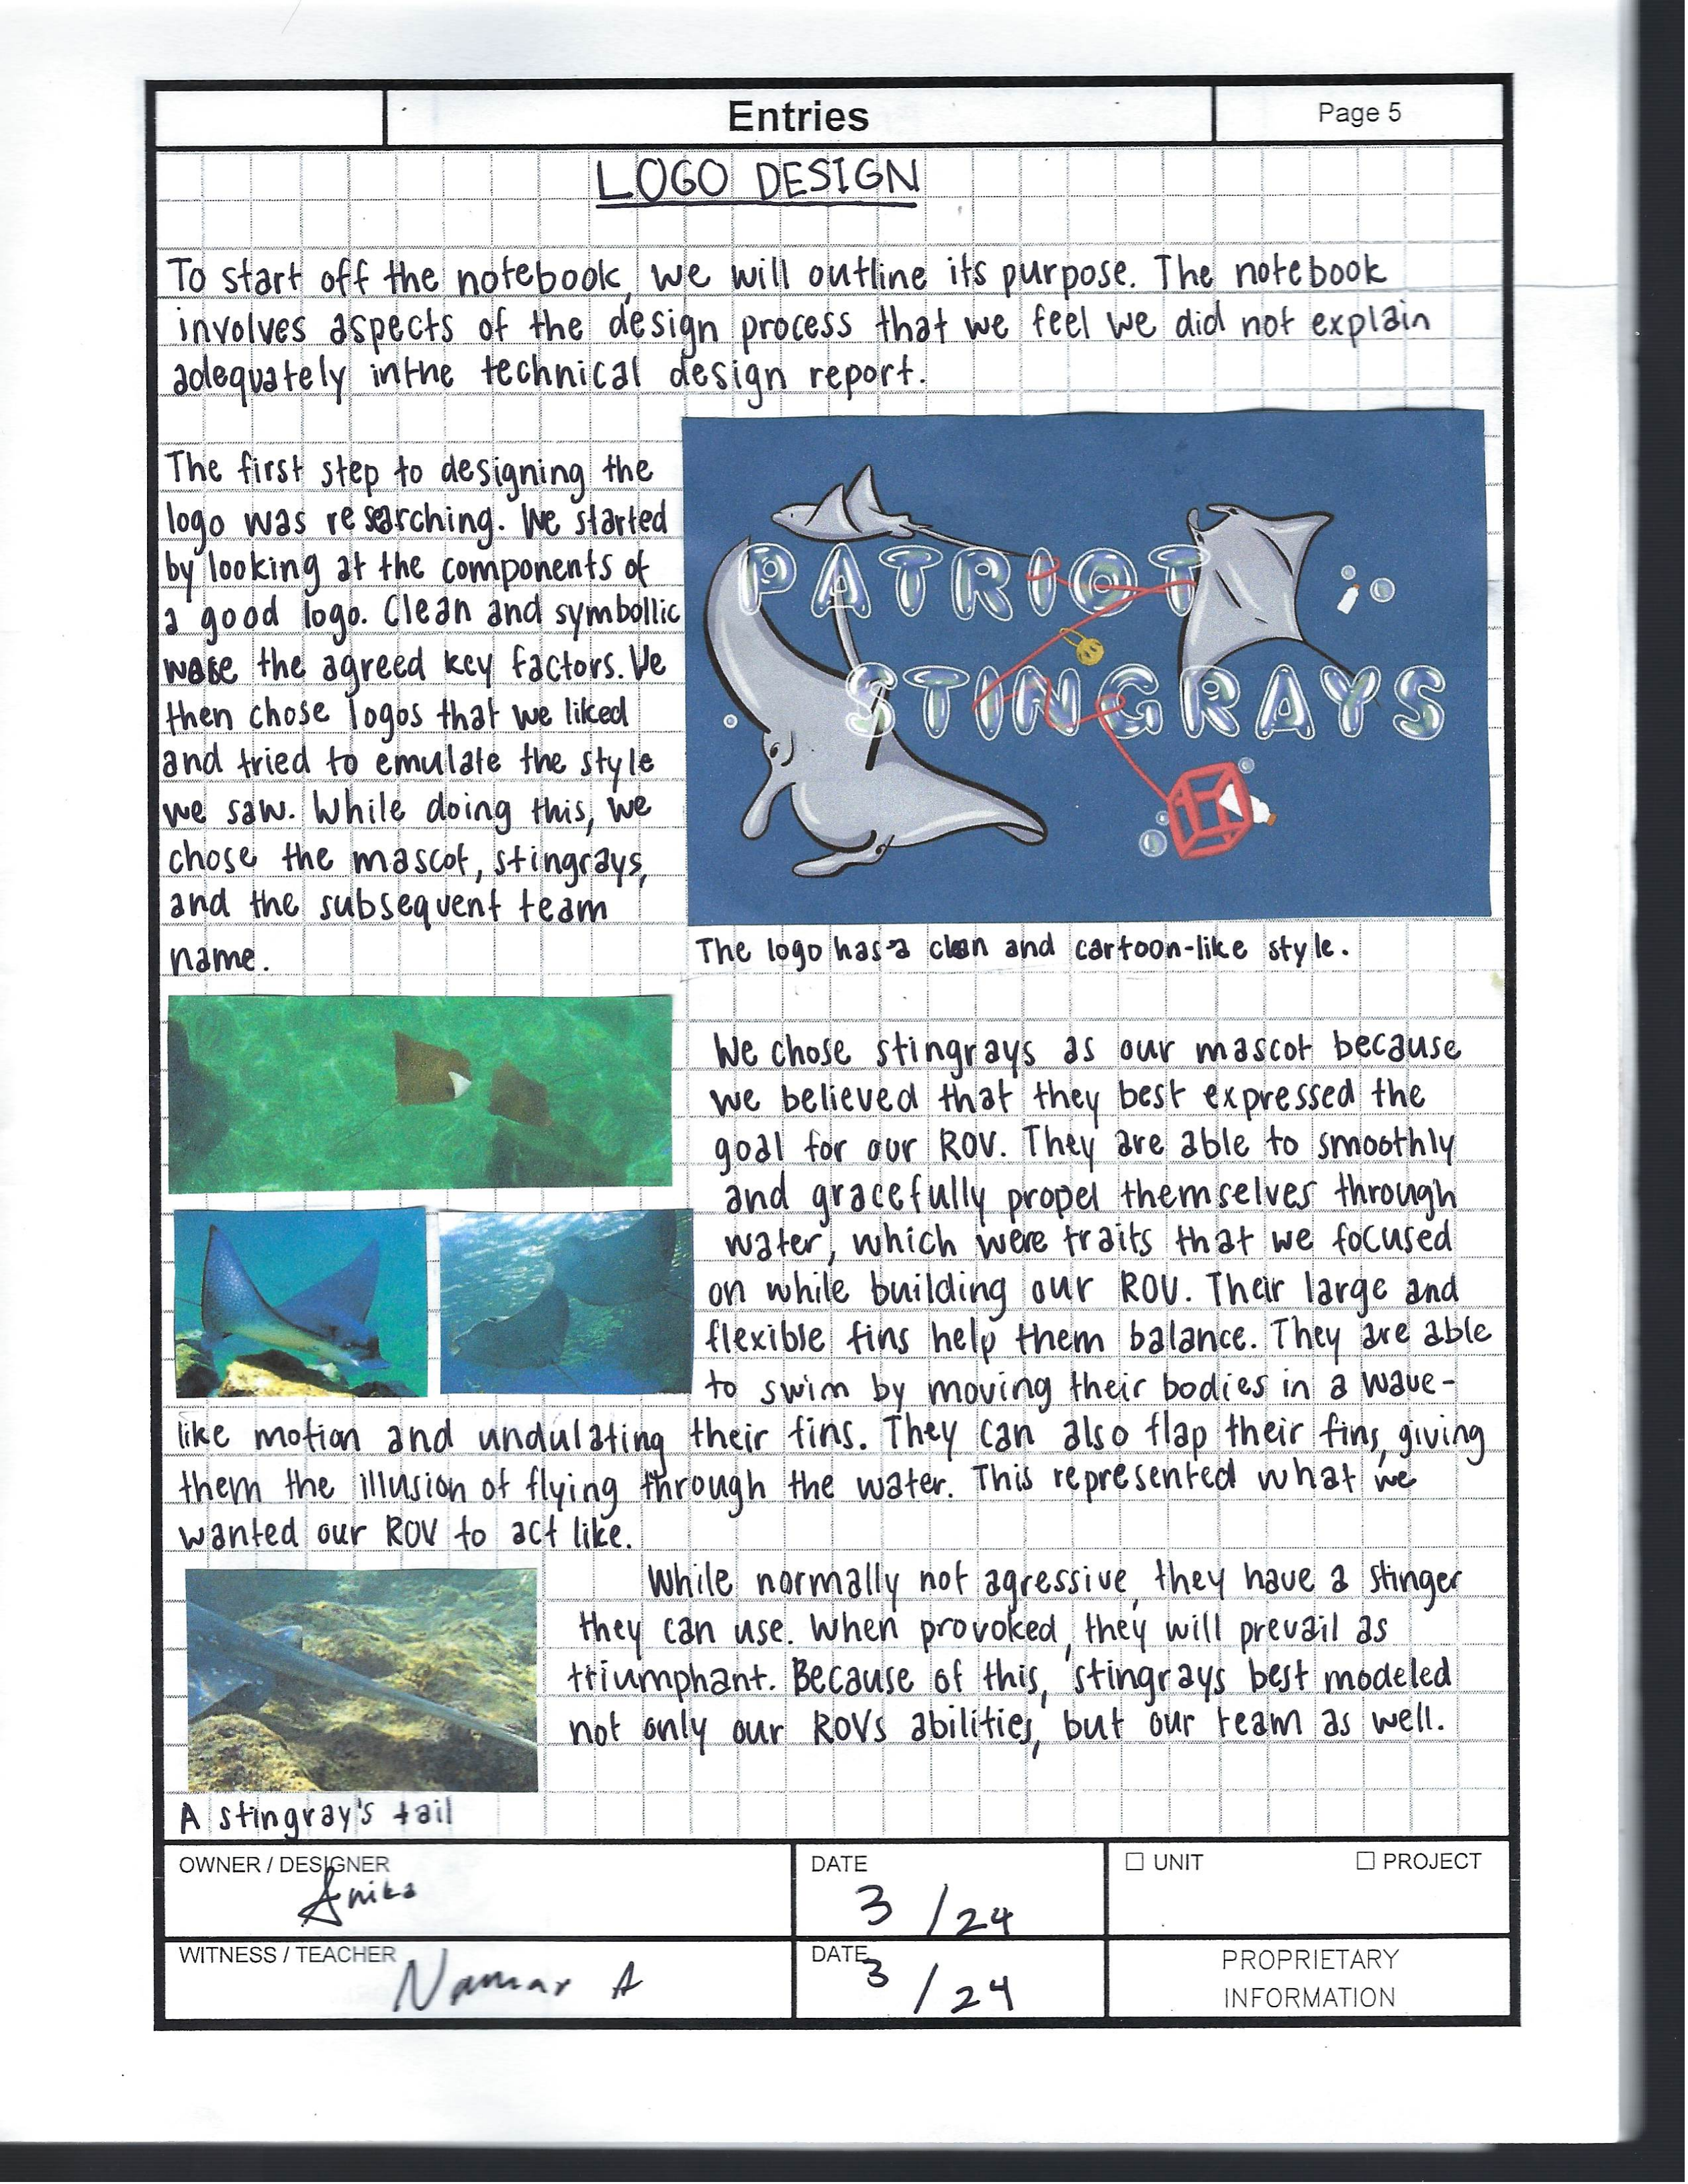 Entries
Page 5
LOGO DESIGN
To start off the notebook, we will outline its purpose. The notebook
involves aspects of the design process that we feel we did not explain
adequately inthe technical design report.
The first step to designing the
logo was researching. We started
by looking at the components of
a good logo. Clean and symbollic
were the agreed key factors. We
then chose logos that we liked
and tried to emulate the style
we saw. While doing this, we
chose the mascot, stingrays,
and the subsequent team
name.
PATRIOT
STINGRAYS
The logo has a clean and cartoon-like style.
We chose stingrays as our mascot because
we believed that they best expressed the
goal for our ROV. They are able to smoothly
and gracefully propel themselves through
water, which were traits that we focused
on while building our ROV. Their large and
flexible fins help them balance. They are able
to swim by moving their bodies in a wave-
like motion and undulating their fins. They can also flap their fins, giving
them the illusion of flying through the water. This represented what we
wanted our ROV to act like.
While normally not agressive, they have a stinger
they can use. When provoked, they will prevail as
triumphant. Because of this, stingrays best modeled
not only our ROVs abilities, but our team as well.
A stingray's tail
OWNER / DESIGNER
Anika
DATE
3/24
☐ UNIT
☐ PROJECT
WITNESS / TEACHER
A
DATE
3/24
PROPRIETARY
INFORMATION